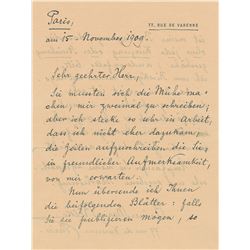 77, RUE DE VARENNE
Paris,
am 15. November 1909.
Sehr geehrter Herr,
Sie mussten sich die Mühe ma-
chen, mir zweimal zu schreiben;
aber ich stecke so sehr in Arbeit,
dass ich nicht eher dazukam,
die Zeilen aufzuschreiben, die Sie,
in freundlicher Aufmerksamkeit,
von mir erwarten.
Nun übersende ich Ihnen
die beifolgenden Blätter: falls
Sie sie publizieren mögen, so